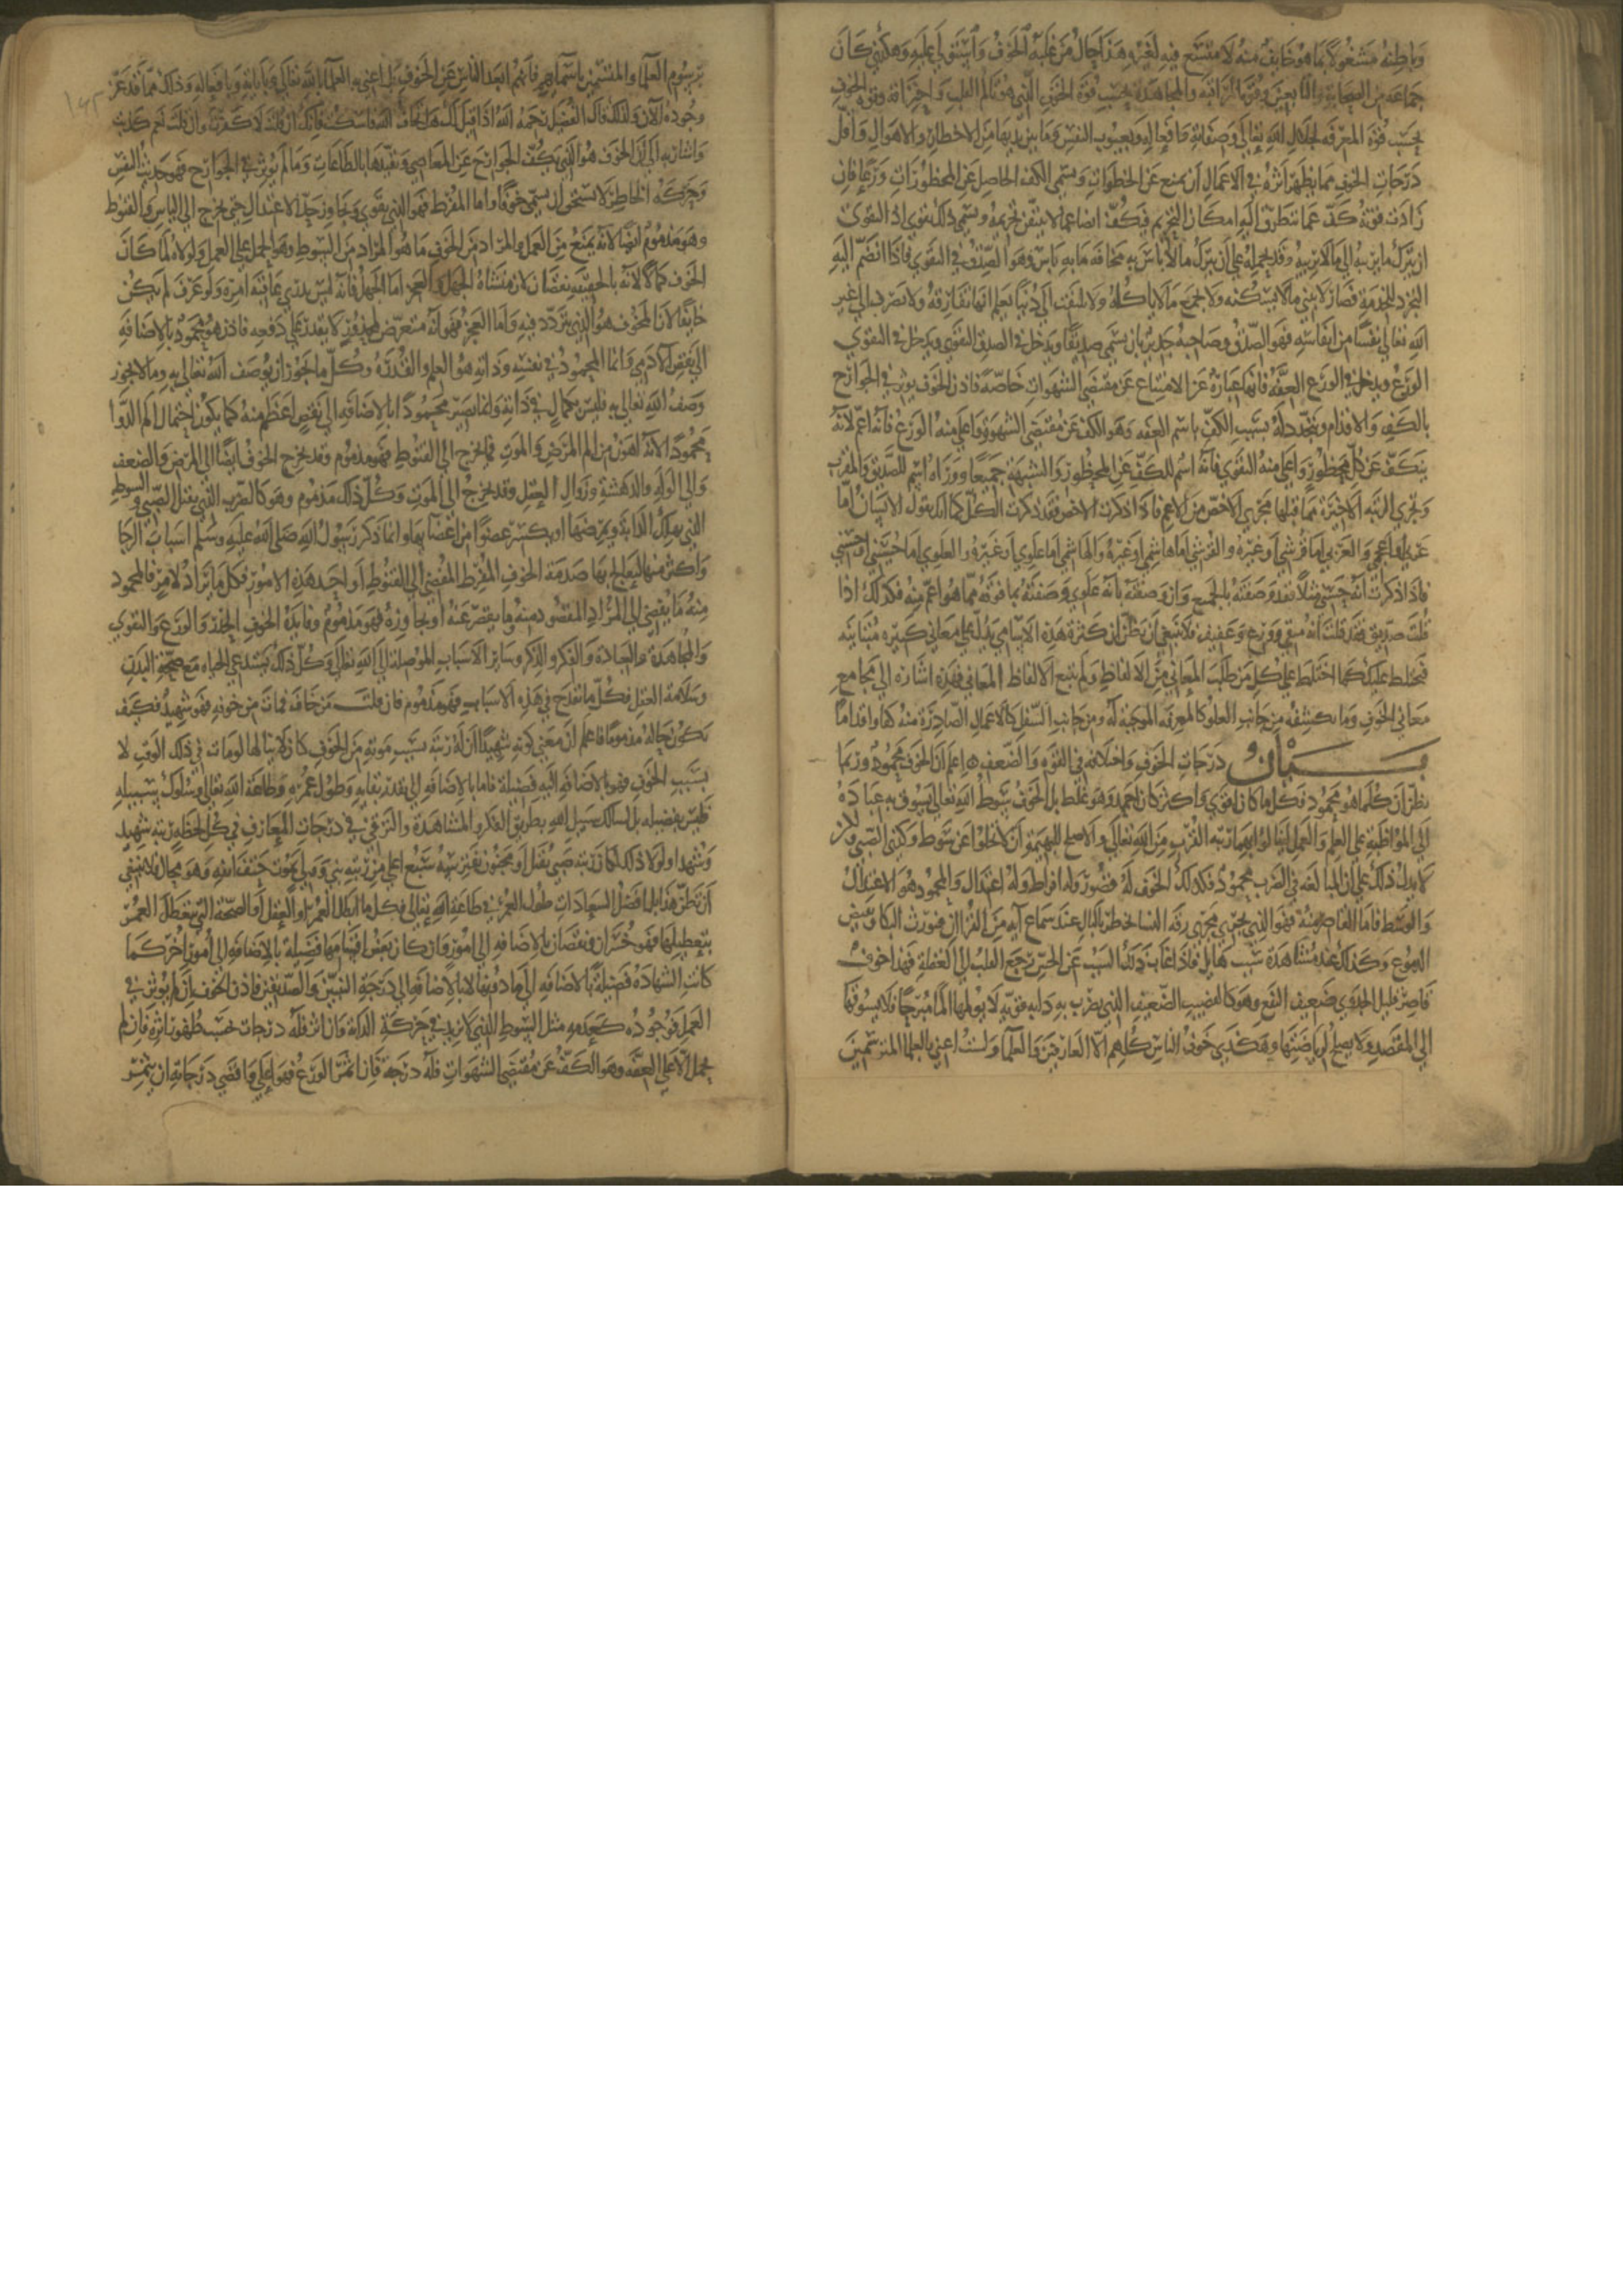 وباطنه مشغولا بما هو خايف منه لا متسع فيه لغيره هذا حال من غلبه الخوف واستولى عليه وهكذى كان
جماعة من الصحابة والتابعين وقوة المراقبة والمجاهدة بحسب قوة الخوف الذي هو تالم القلب واحتراقه وقوة الخوف
بحسب قوة المعرفة بجلال الله تعالى وصفاته وافعاله وبعيوب النفس وما بين يديها من الاخطار والاهوال واقل
درجات الخوف مما يظهر اثره في الاعمال ان يمنع عن المحظورات ويسمى الكف الحاصل عن المحظورات ورعا فان
زادت قوته كف عما يتطرق اليه امكان التحريم فيكف ايضا عما لا يتيقن تحريمه ويسمى ذلك تقوى اذ التقوى
ان يترك ما يريبه الى ما لا يريبه وقد يحمله على ان يترك ما لا باس به مخافة ما به باس وهو الصدق في التقوى فاذا انضم اليه
التجرد للخدمة فصار لا يبني ما لا يسكنه ولا يجمع ما لا ياكله ولا يلتفت الى دنيا يعلم انها تفارقه ولا يصرف الى غير
الله تعالى نفسا من انفاسه فهو الصدق وصاحبه جدير بان يسمى صديقا ويدخل في الصدق التقوى ويدخل في التقوى
الورع ويدخل في الورع العفة فانها عبارة عن الامتناع عن مقتضى الشهوات خاصة فاذن الخوف يوثر في الجوارح
بالكف والاقدام ويتجدد له بسبب الكف اسم العفة وهو الكف عن مقتضى الشهوة واعلى منه الورع فانه اعم لانه
يتكف عن كل محظور واعلى منه التقوى فانه اسم للكف عن المحظور والشبهة جميعا ووراه اسم للصديق والمقرب
وتجري الرتبة الاخيرة مما قبلها مجرى الاخص من الاعم فاذا ذكرت الاخص فقد ذكرت الكل كما انك تقول الانسان اما
عربي واما عجمي والعربي اما قرشي او غيره والقرشي اما هاشمي او غيره والهاشمي اما علوي او غيره والعلوي اما حسيني او حسني
فاذا ذكرت انه حسني مثلا فقد وصفته بالجميع وان وصفته بانه علوي وصفته بما فوقه مما هو اعم منه فكذلك اذا
قلت صديق فقد قلت انه متقي وورع وعفيف فلا ينبغي ان تظن ان كثرة هذه الاسامي يدل على معاني كثيرة متباينة
فيختلط عليك كما اختلط على كل من طلب المعاني من الالفاظ ولم يتبع الالفاظ المعاني فهذه اشارة الى مجامع
معاني الخوف وما يكتنفه من جانب العلو كالمعرفة الموجبة له ومن جانب السفل كالاعمال الصادرة منه كفا واقداما
بيان درجات الخوف واختلافه في القوة والضعف اعلم ان الخوف محمود وربما
يظن ان كلما هو محمود فكل ما كان اقوى واكثر كان احمد وهو غلط بل الخوف سوط الله تعالى يسوق به عباده
الى المواظبة على العلم والعمل لينالوا بهما رتبة القرب من الله تعالى والاصلح للبهيمة ان لا تخلوا عن سوط وكذى الصبي ولكن
لا يدل ذلك على ان المبالغة في الضرب محمود فكذلك الخوف له قصور وله افراط وله اعتدال والمحمود هو الاعتدال
والوسط فاما القاصر منه فهو الذي يجري مجرى رقة النسا يخطر بالبال عند سماع آية من القران فيورث البكا وتفيض
الدموع وكذلك عند مشاهدة سبب هايل فاذا غاب ذلك السبب عن الحس رجع القلب الى الغفلة فهذا خوف
قاصر قليل الجدوى ضعيف النفع وهو كالقضيب الضعيف الذي يضرب به دابة قوية لا يولمها الما مبرحا فلا يسوقها
الى المقصد ولا يصلح لرياضتها وهكذى خوف الناس كلهم الا العارفين والعلما ولست اعني بالعلما المترسمين
برسوم العلما والمتسمين باسمايهم فانهم ابعد الناس عن الخوف بل اعني به العلما بالله تعالى وباياته وبافعاله وذلك مما قد عز
وجوده الآن ولذلك قال الفضيل رحمه الله اذا قيل لك هل تخاف الله فاسكت فانك ان قلت لا كفرت وان قلت نعم كذبت
واشار به الى ان الخوف هو الذي يكف الجوارح عن المعاصي ويقيدها بالطاعات وما لم يوثر في الجوارح فهو حديث النفس
وحركة الخاطر لا يستحق ان يسمى خوفا واما المفرط فهو الذي يقوى ويجاوز حد الاعتدال حتى يخرج الى الياس والقنوط
وهو مذموم ايضا لانه يمنع من العمل والمراد من الخوف ما هو المراد من السوط وهو الحمل على العمل ولولاه لما كان
الخوف كمالا لانه بالحقيقة نقصان لان منشاه الجهل والعجز اما الجهل فانه ليس يدري عاقبة امره ولو عرف لم يكن
خايفا لان المخوف هو الذي يتردد فيه واما العجز فهو انه متعرض لمحذور لا يقدر على دفعه فاذن هو محمود بالاضافة
الى نقص الآدمي وانما المحمود في نفسه وذاته هو العلم والقدرة وكل ما يجوز ان يوصف الله تعالى به وما لا يجوز
وصف الله تعالى به فليس بكمال في ذاته وانما يصير محمودا بالاضافة الى نقص اعظم منه كما يكون احتمال الم الدوا
محمودا لانه اهون من الم المرض والموت فما يخرج الى القنوط فهو مذموم وقد يخرج الخوف ايضا الى المرض والضعف
والى الوله والدهشة وزوال العقل وقد يخرج الى الموت وكل ذلك مذموم وهو كالضرب الذي يقتل الصبي والسوط
الذي يهلك الدابة ويمرضها او يكسر عضوا من اعضايها وانما ذكر رسول الله صلى الله عليه وسلم اسباب الرجا
واكثر منها ليعالج بها صدمة الخوف المفرط المفضي الى القنوط او احد هذه الامور فكل ما يراد لامر فالمحمود
منه ما يفضي الى المراد المقصود منه وما يقصر عنه او يجاوزه فهو مذموم وفايدة الخوف الحذر والورع والتقوى
والمجاهدة والعبادة والفكر والذكر وساير الاسباب الموصلة الى الله تعالى وكل ذلك يستدعي الحياة مع صحة البدن
وسلامة العقل فكل ما يقدح في هذه الاسباب فهو مذموم فان قلت من خاف فمات من خوفه فهو شهيد فكيف
يكون حاله مذموما فاعلم ان معنى كونه شهيدا ان له رتبة بسبب موته من الخوف كان لا ينالها لو مات في ذلك الوقت لا
بسبب الخوف فهو بالاضافة اليه فضيلة فاما بالاضافة الى تقدير بقايه وطول عمره وطاعة الله تعالى وسلوك سبيله
فليس بفضيلة بل لسالك سبيل الله بطريق الفكر والمشاهدة والترقي في درجات المعارف في كل لحظة رتبة شهيد
وشهدا ولولا ذلك لكان رتبة صبي يقتل او مجنون يفترسه سبع اعلى من رتبة نبي وولي يموت حتف انفه وهو محال فلا ينبغي
ان تظن هذا بل افضل السعادات طول العمر في طاعة الله تعالى فكل ما ابطل العمر او العقل او الصحة التي يتعطل العمر
بتعطيلها فهو خسران ونقصان بالاضافة الى امور وان كان بعض اقسامها فضيلة بالاضافة الى امور اخر كما
كانت الشهادة فضيلة بالاضافة الى ما دونها لا بالاضافة الى درجة النبيين والصديقين فاذن الخوف ان لم يوثر في
العمل فوجوده كعدمه مثل السوط الذي لا يزيد في حركة الدابة وان اثر فله درجات بحسب ظهور اثره فان لم
يحمل الا على العفة وهو الكف عن مقتضى الشهوات فله درجة فان اثمر الورع فهو اعلى واقصى درجاته ان يثمر